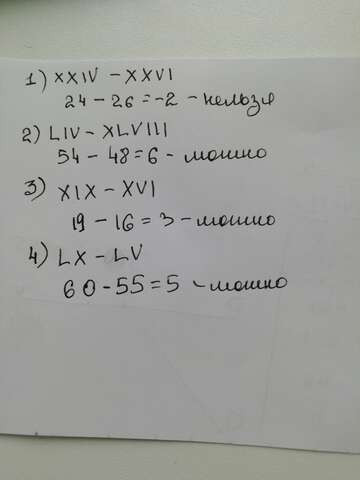 1) XXIV - XXVI
24 - 26 = -2 - нельзя
2) LIV - XLVIII
54 - 48 = 6 - мошно
3) XIX - XVI
19 - 16 = 3 - мошно
4) LX - LV
60 - 55 = 5 - мошно